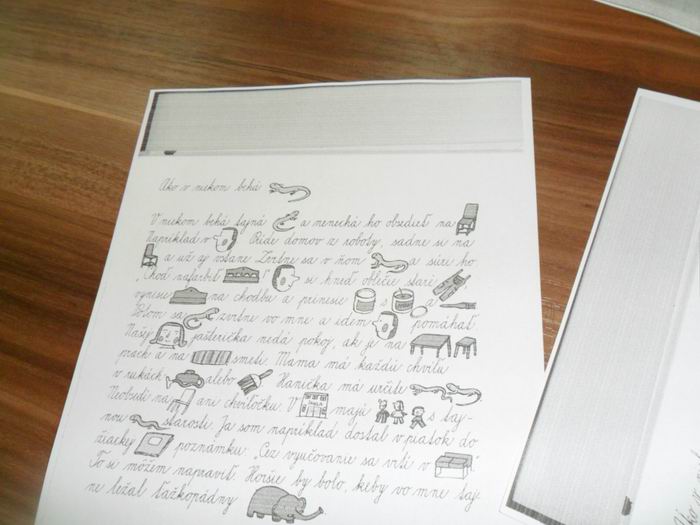 Ako v niekom behá
V niekom behá tajná a nenechá ho obsedieť na
Napríklad v Príde domov z roboty, sadne si na
a už aj vstane. Zvrtne sa v ňom a súri ho
„Choď nafarbiť si hneď oblečie staré
vynesie na chodbu a prinesie s a
Potom sa zvrtne vo mne a idem pomáhať.
Našej jašterička nedá pokoj, ak je na
prach a na smeti. Mama má každú chvíľu
v rukách alebo Hanička má určite
Neobsedí na ani chvíľočku. V ŠKOLA majú s taj-
nou starosti. Ja som napríklad dostal v piatok do
žiackej poznámku: „Cez vyučovanie sa vrtí v
To si môžem napraviť. Horšie by bolo, keby vo mne taje
ne ležal ťažkopádny